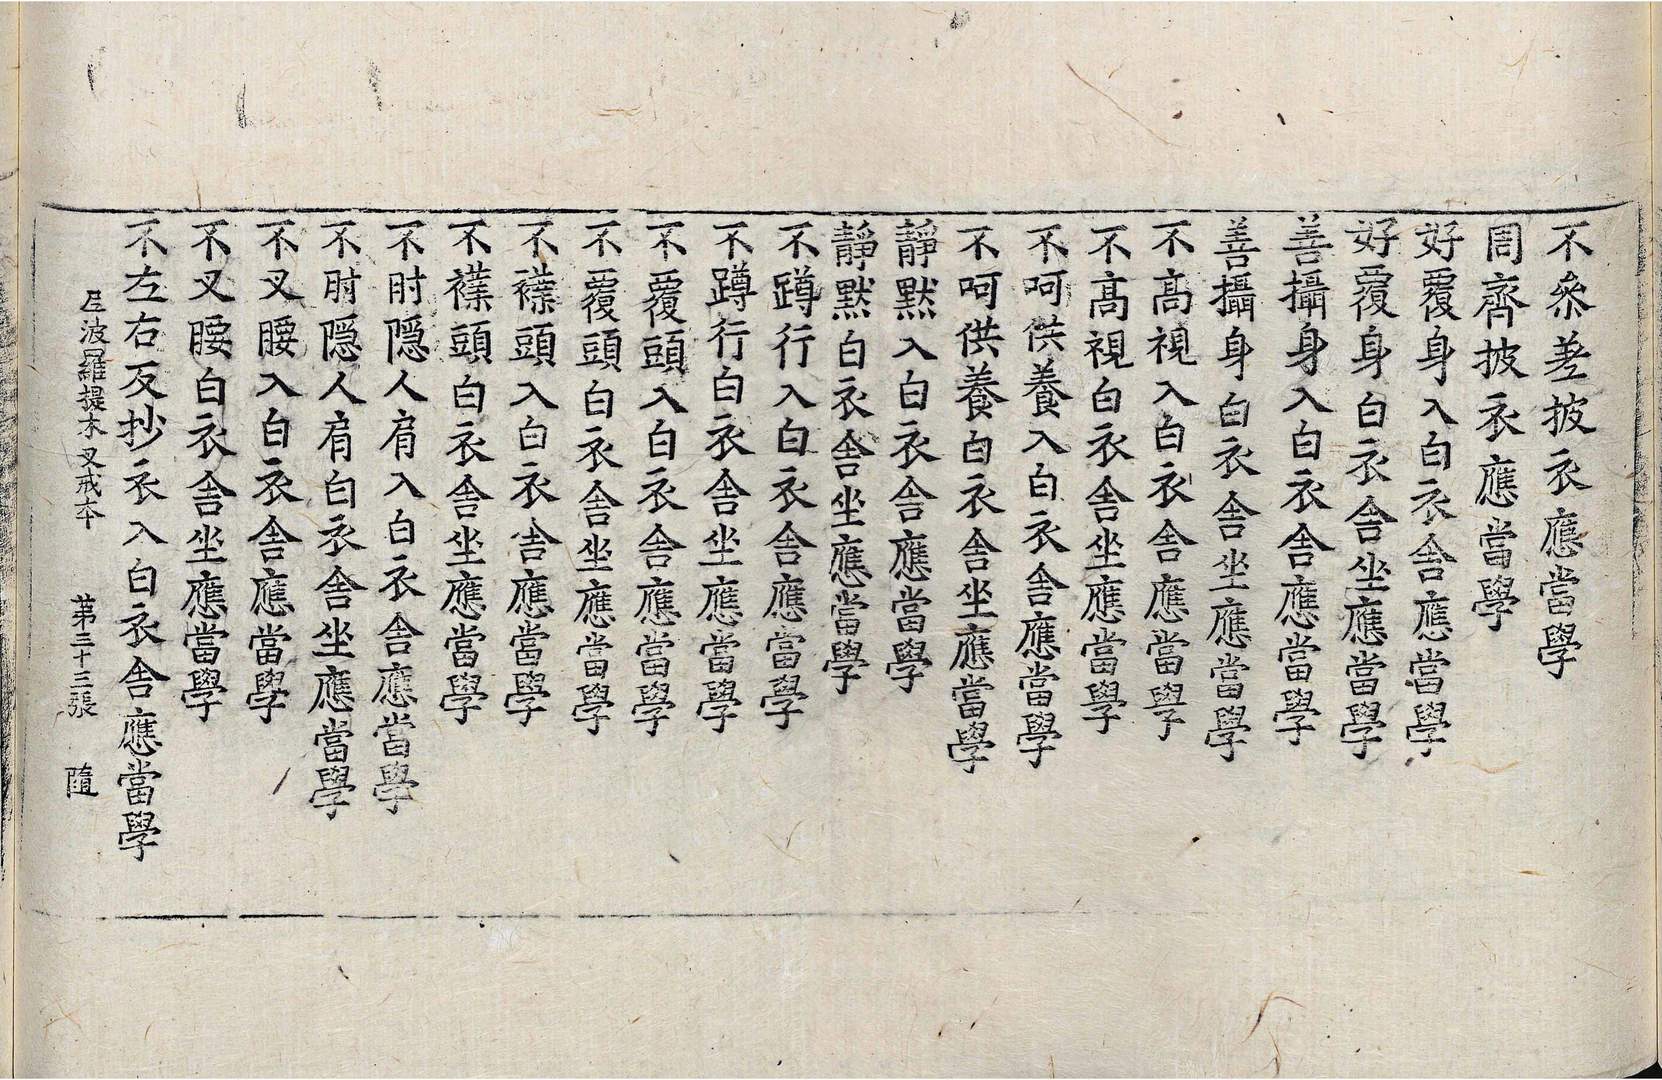 不叅差披衣應當學
周齊披衣應當學
好覆身入白衣舎應當學
好覆身白衣舎坐應當學
善攝身入白衣舎應當學
善攝身白衣舎坐應當學
不髙視入白衣舎應當學
不髙視白衣舎坐應當學
不呵供養入白衣舎應當學
不呵供養白衣舎坐應當學
靜黙入白衣舎應當學
靜黙白衣舎坐應當學
不蹲行入白衣舎應當學
不蹲行白衣舎坐應當學
不覆頭入白衣舎應當學
不覆頭白衣舎坐應當學
不襆頭入白衣舎應當學
不襆頭白衣舎坐應當學
不肘隠人肩入白衣舎應當學
不肘隠人肩白衣舎坐應當學
不叉腰入白衣舎應當學
不叉腰白衣舎坐應當學
不左右反抄衣入白衣舎應當學
尼波羅提木叉戒本 第三十三張 隨